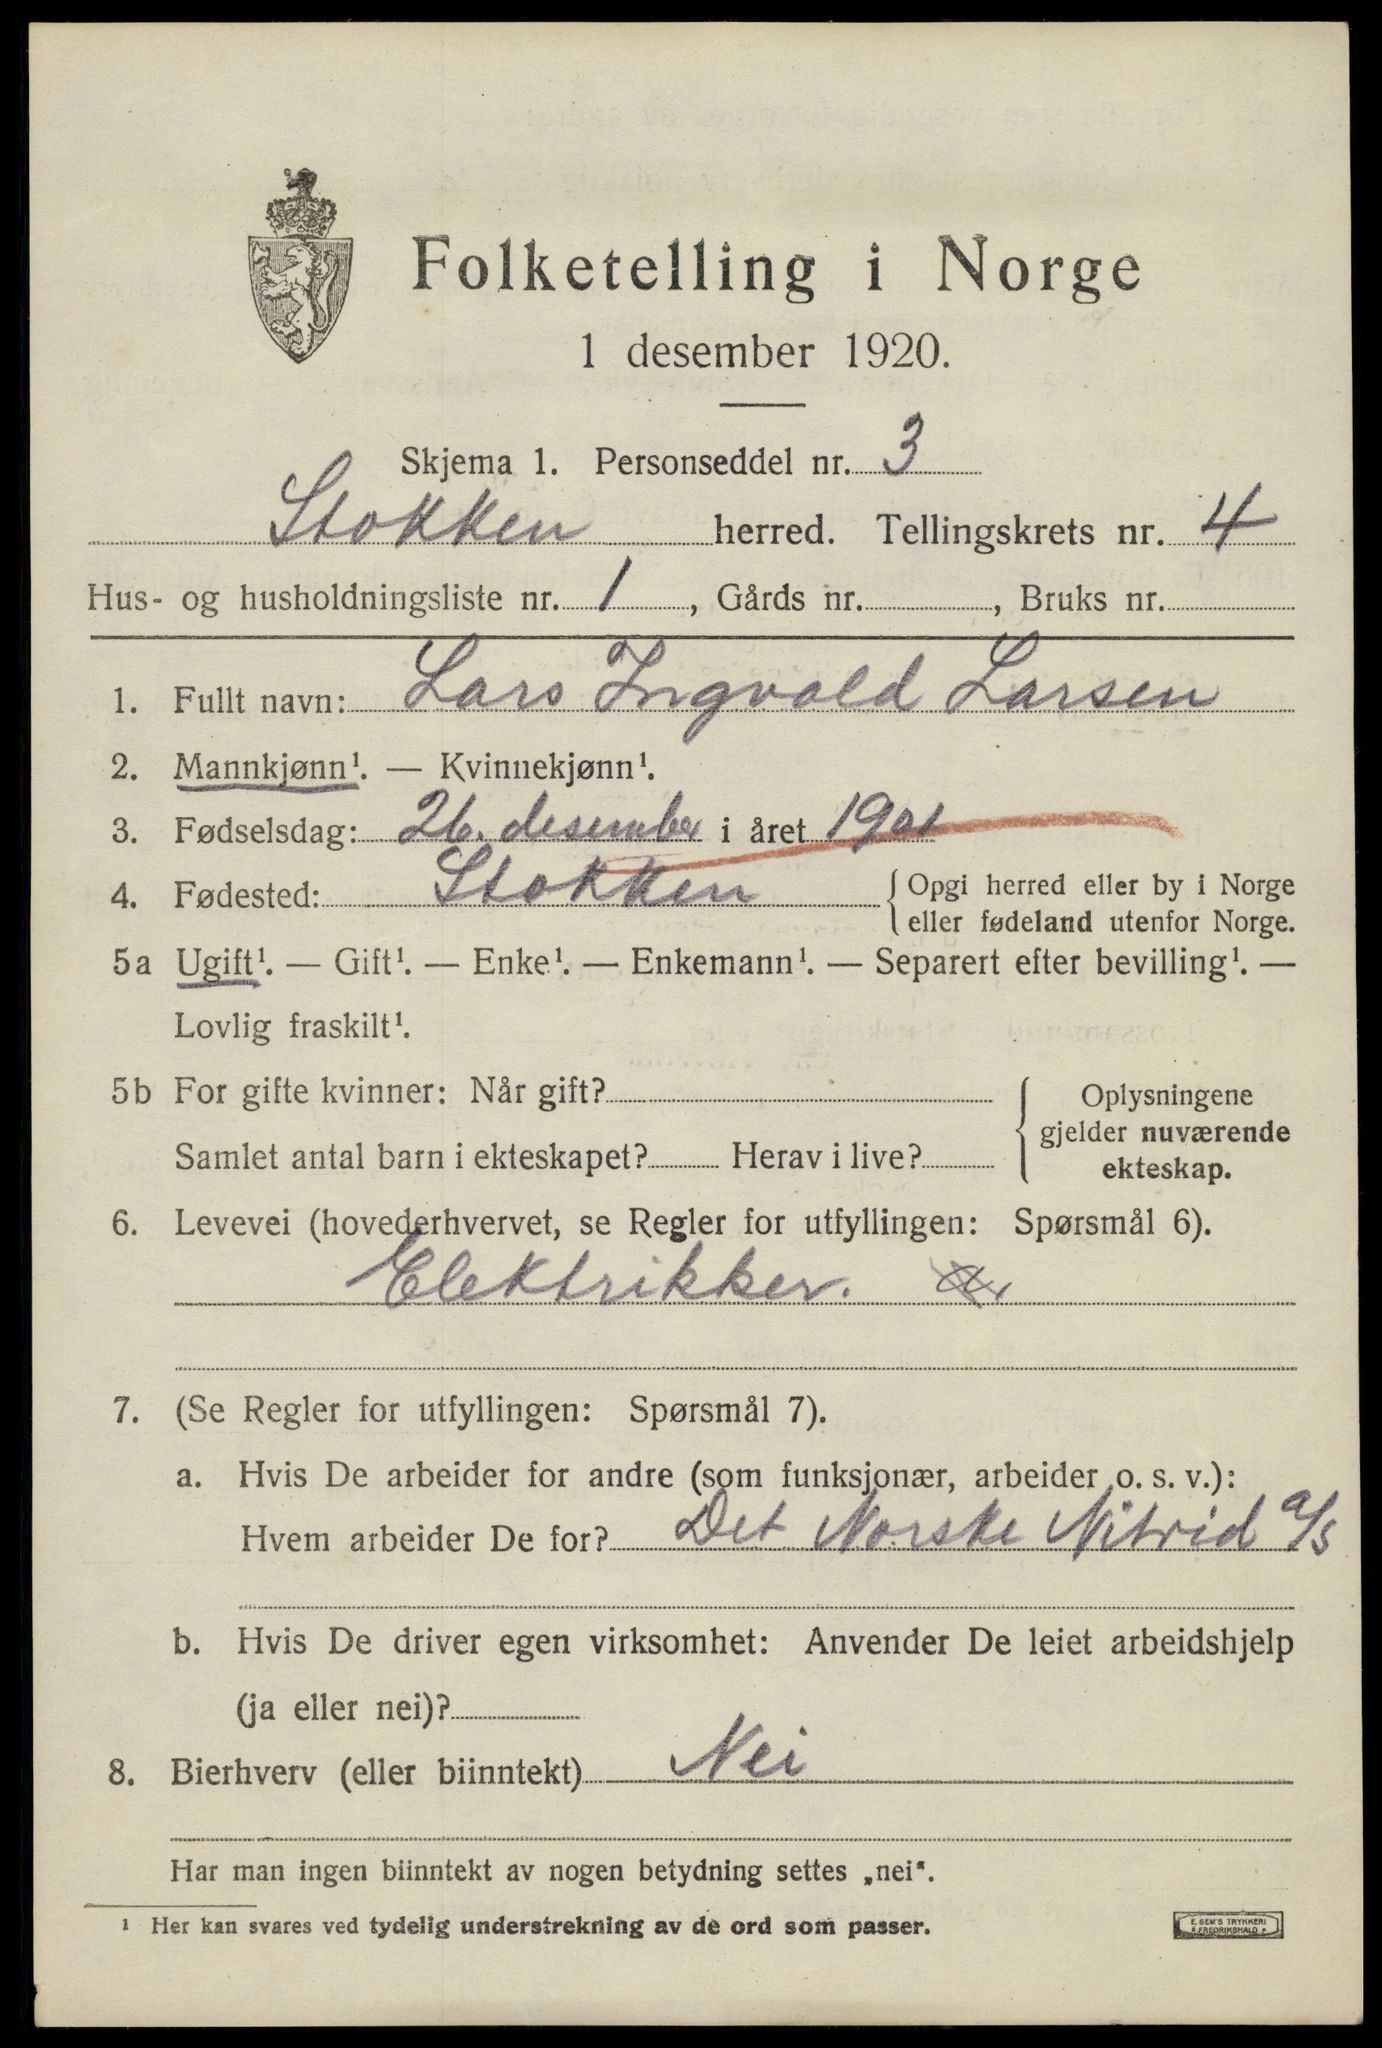 Folketelling i Norge
1 desember 1920.
Skjema 1. Personseddel nr. 3
Stokken herred. Tellingskrets nr. 4
Hus- og husholdningsliste nr. 1, Gårds nr. , Bruks nr.
1. Fullt navn: Lars Ingvald Larsen
2. Mannkjønn¹. — Kvinnekjønn¹.
3. Fødselsdag: 26. desember i året 1901
4. Fødested: Stokken
{ Opgi herred eller by i Norge
eller fødeland utenfor Norge.
5a Ugift¹. — Gift¹. — Enke¹. — Enkemann¹. — Separert efter bevilling¹. —
Lovlig fraskilt¹.
5b For gifte kvinner: Når gift?
Samlet antal barn i ekteskapet? Herav i live?
{ Oplysningene
gjelder nuværende
ekteskap.
6. Levevei (hovederhvervet, se Regler for utfyllingen: Spørsmål 6).
Elektrikker.
7. (Se Regler for utfyllingen: Spørsmål 7).
a. Hvis De arbeider for andre (som funksjonær, arbeider o. s. v.):
Hvem arbeider De for? Det Norske Nitrid a/s
b. Hvis De driver egen virksomhet: Anvender De leiet arbeidshjelp
(ja eller nei)?
8. Bierhverv (eller biinntekt) Nei
Har man ingen biinntekt av nogen betydning settes „nei“.
1 Her kan svares ved tydelig understrekning av de ord som passer.
E. SEM'S TRYKKERI
FREDRIKSHALD